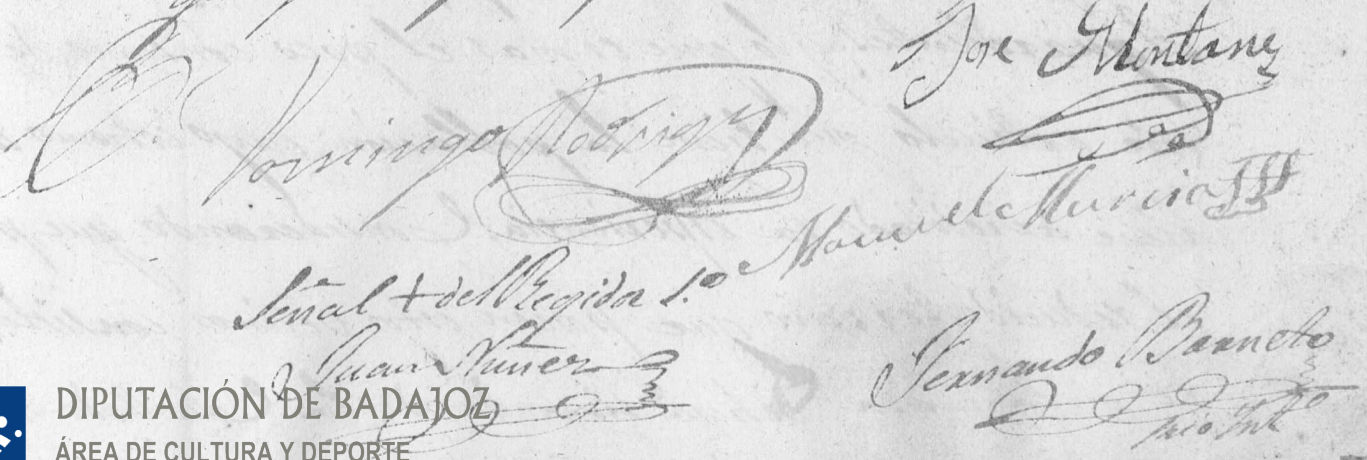 Jose Montane
Domingo Rodriguez
Manuel Murcia
Señal + del Regidor 1.º
Juan Nuñez
Fernando Barneto
Srio Intº
DIPUTACIÓN DE BADAJOZ
ÁREA DE CULTURA Y DEPORTE